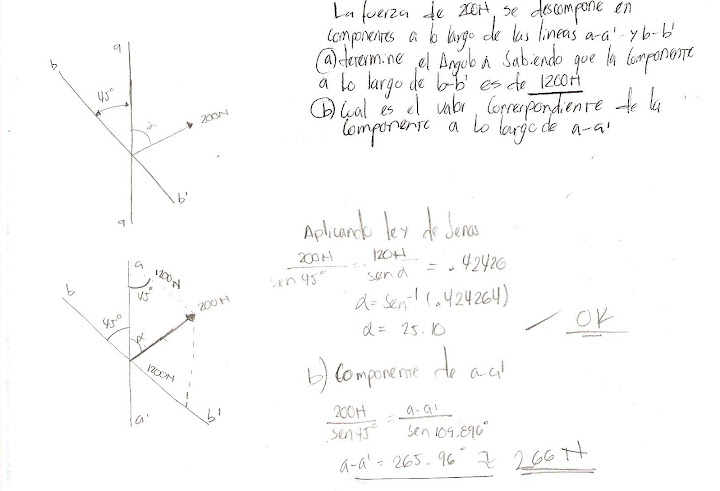 La fuerza de 200N, se descompone en
componentes a lo largo de las lineas a-a' y b-b'
(a) determine el Angulo α Sabiendo que la componente
a lo largo de b-b' es de 1200N
(b) Cual es el valor correspondiente de la
componente a lo largo de a-a'
a
b
45°
α
200N
b'
a
Aplicando ley de Senos
200N / sen 45° = 120N / sen α = .42426
α = sen⁻¹ (.424264)
α = 25.10
OK
a
1200N
45°
b
200N
45°
α
1200N
a'
b'
b) Componente de a-a'
200N / sen 45° = a-a' / sen 109.896°
a-a' = 265.96 ≈ 266 N